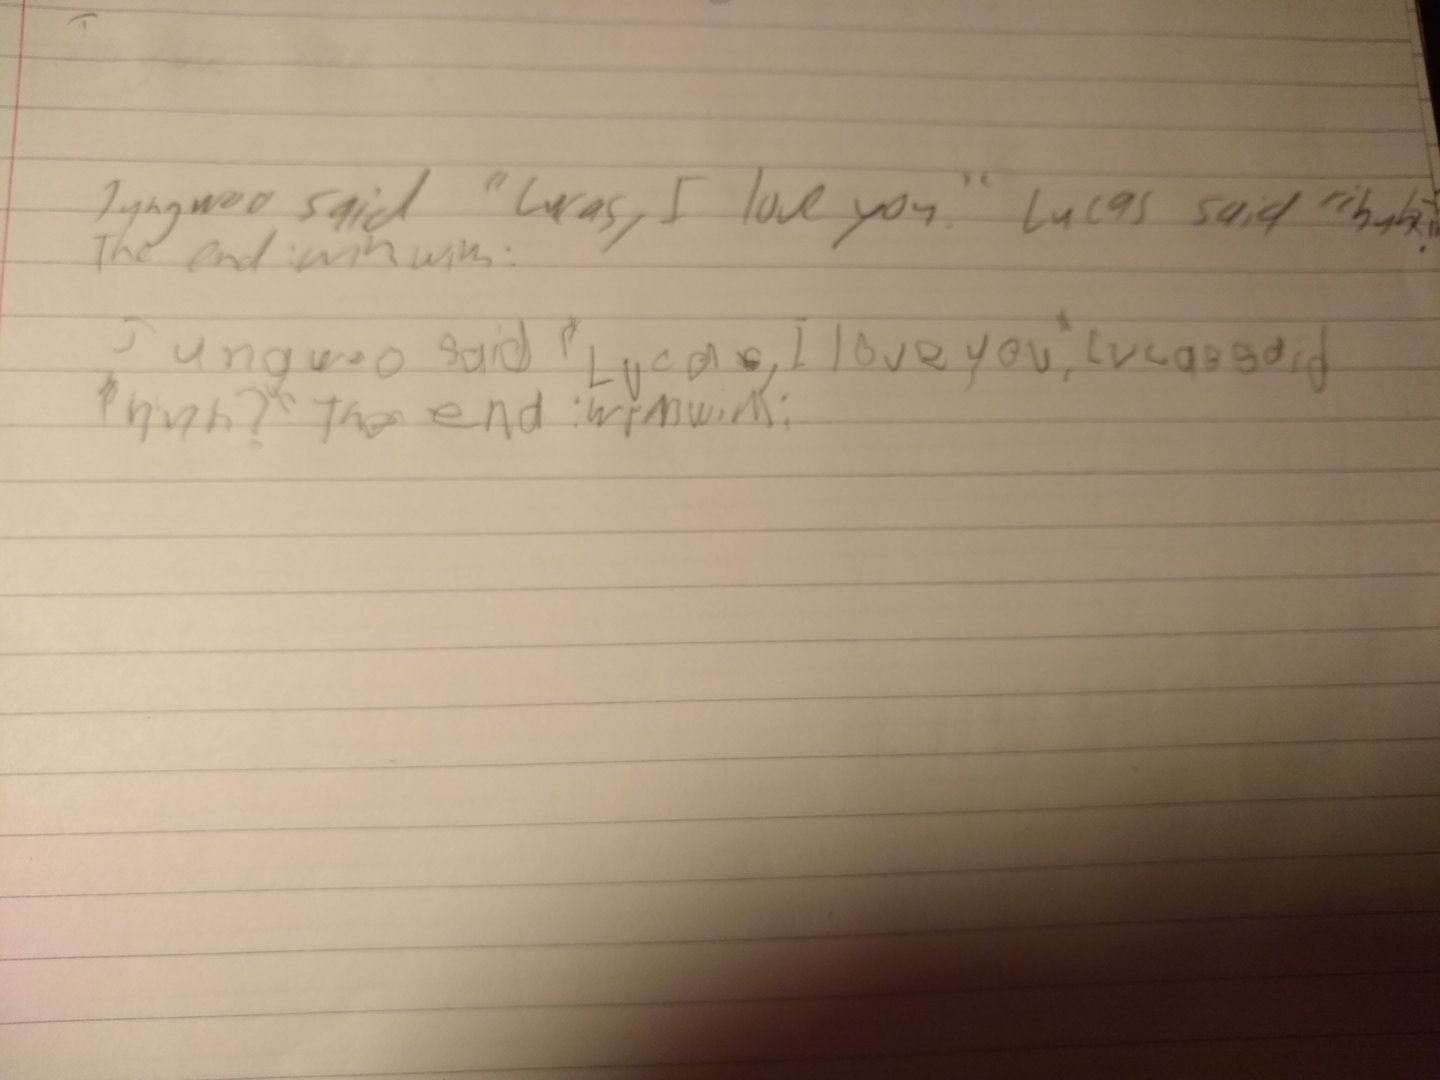 Jungwoo said "Lucas, I love you." Lucas said "huh?"
The end :winwin:
Jungwoo said "Lucas, I love you", Lucas said
"huh?" The end :winwin: